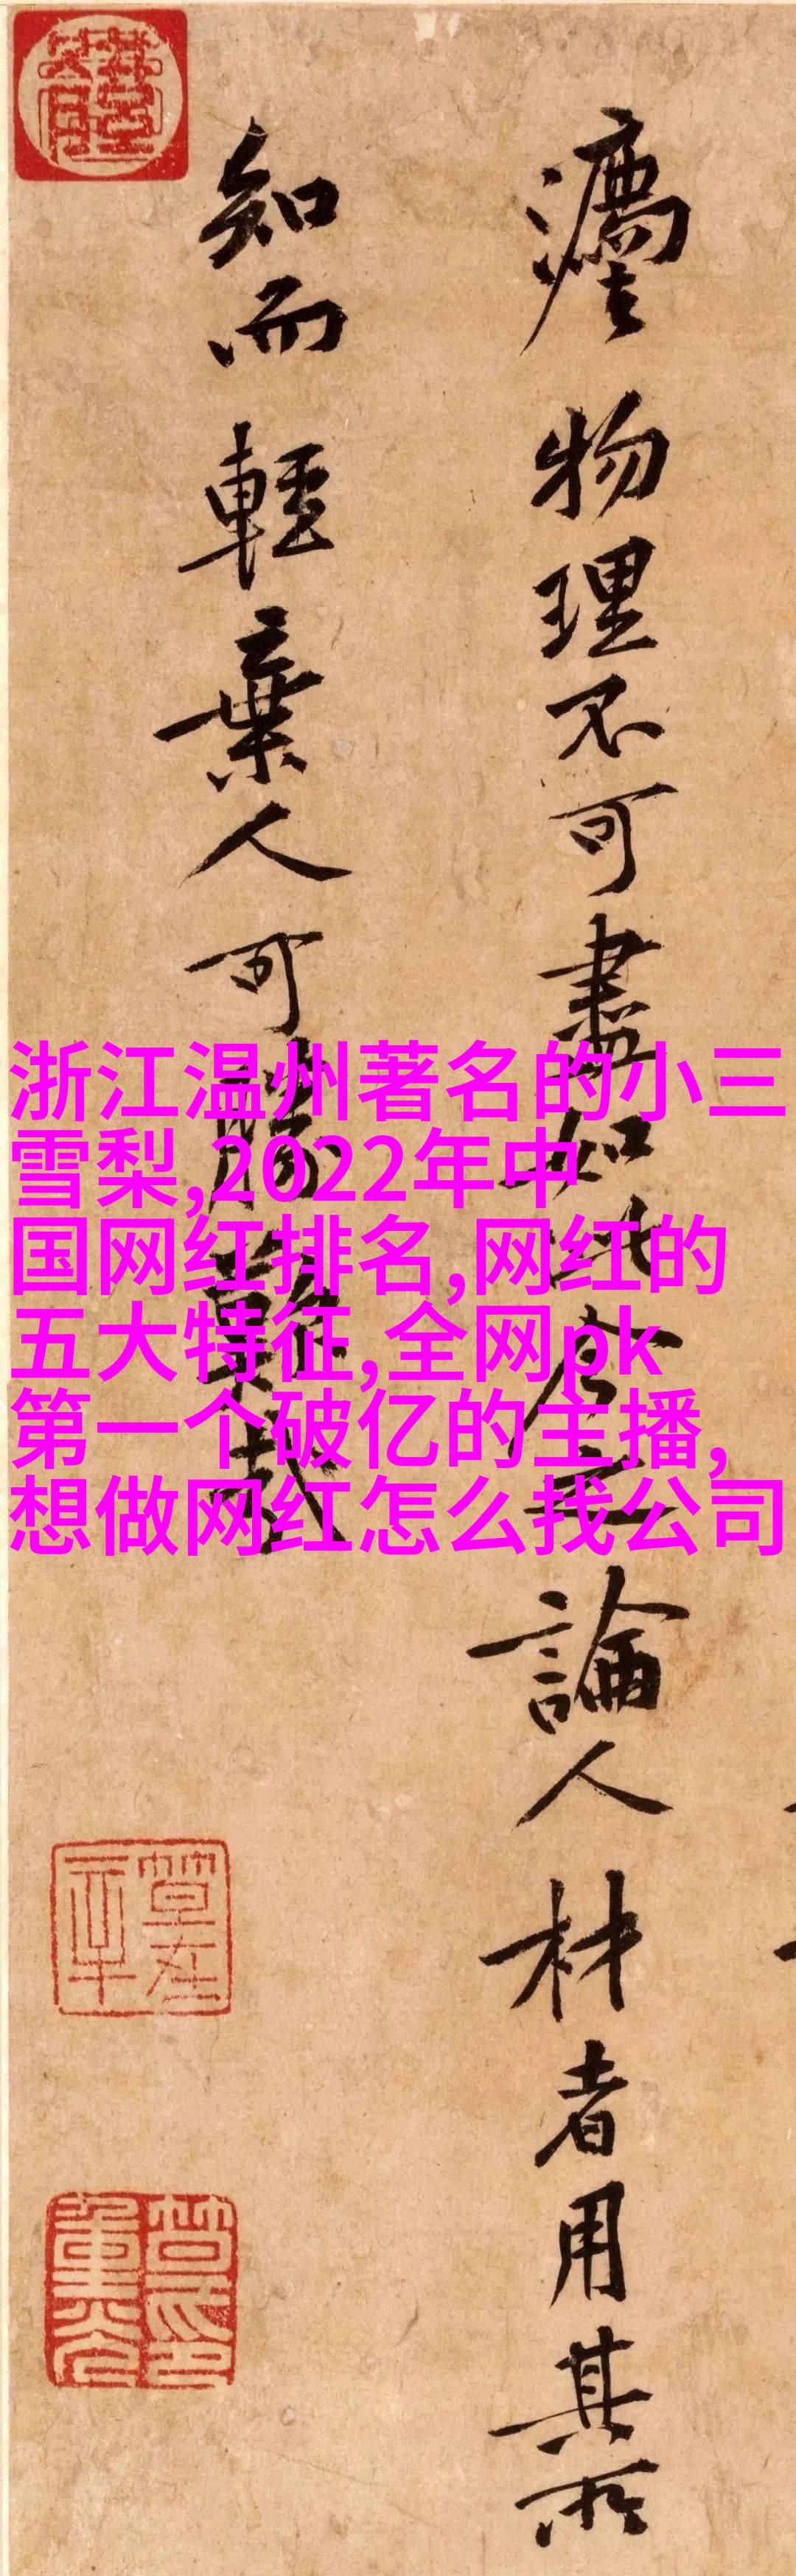 物理不可盡如此余之論人材者用其所
知而輕棄人可勝歎哉
浙江温州著名的小三
雪梨,2022年中
国网红排名,网红的
五大特征,全网pk
第一个破亿的主播,
想做网红怎么找公司